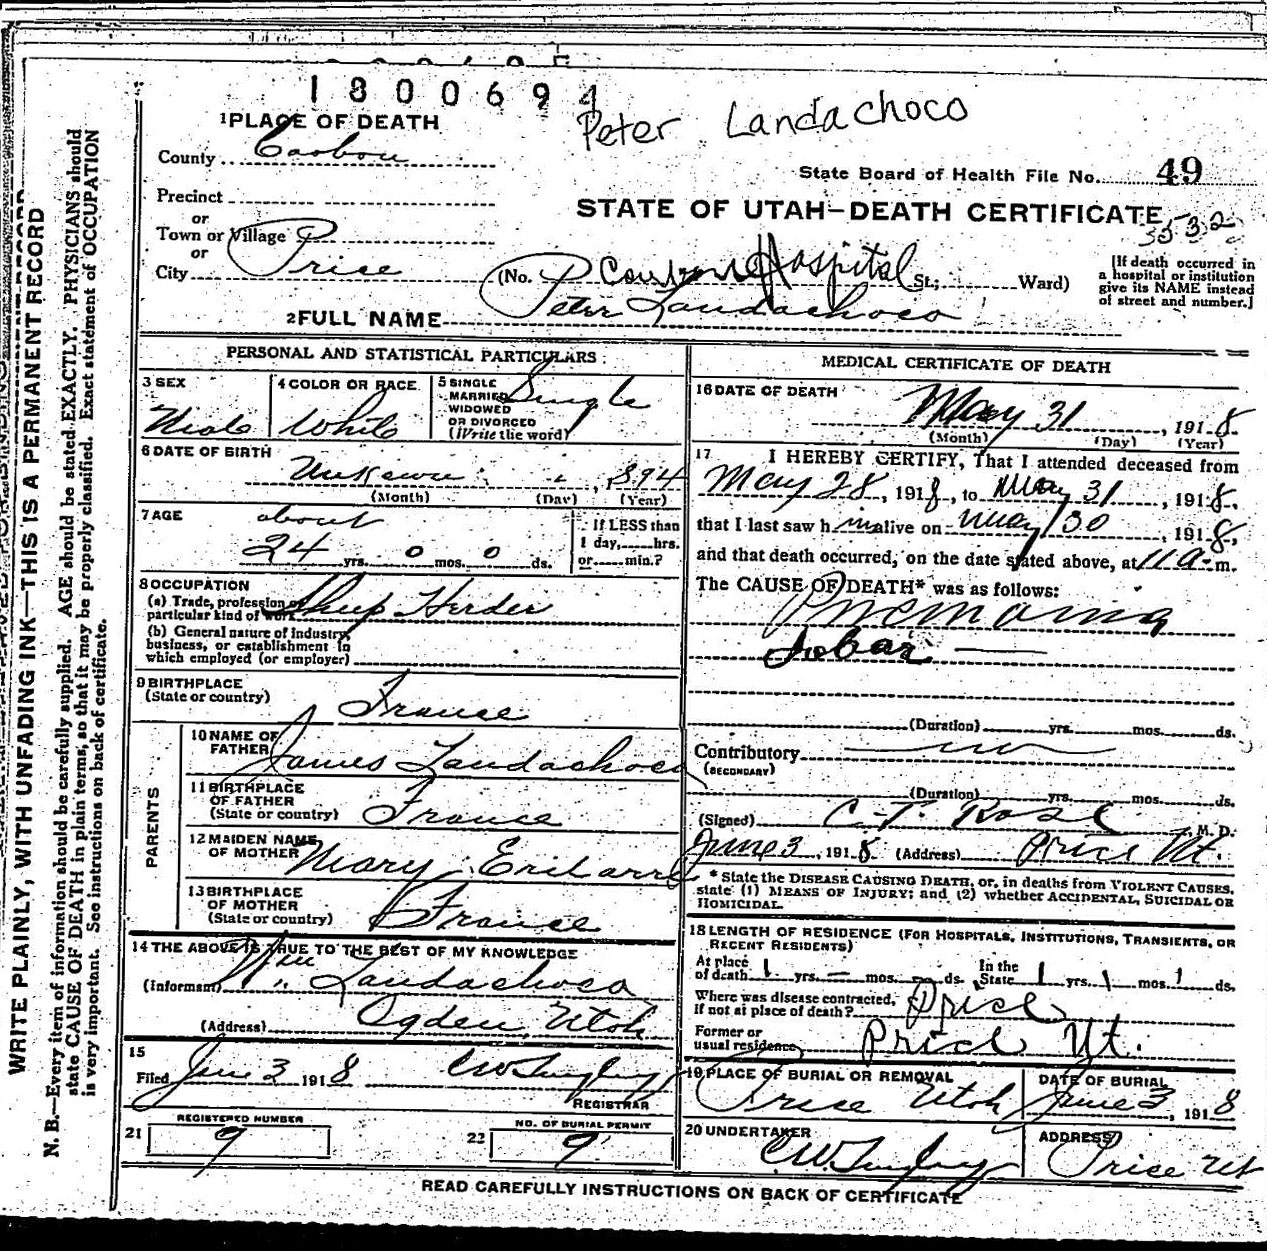 1800694
Peter Landachoco
1 PLACE OF DEATH
County Carbon
State Board of Health File No. 49
Precinct
STATE OF UTAH—DEATH CERTIFICATE
3532
or
Town or Village
or
City Price
(No. Hospital St.; Ward)
[If death occurred in a hospital or institution give its NAME instead of street and number.]
2 FULL NAME Peter Landachoco
PERSONAL AND STATISTICAL PARTICULARS
3 SEX Male
4 COLOR OR RACE White
5 SINGLE MARRIED WIDOWED OR DIVORCED (Write the word) Single
6 DATE OF BIRTH
Unkown , 1894
(Month) (Day) (Year)
7 AGE about
24 yrs. 0 mos. 0 ds.
If LESS than 1 day, hrs. or min.?
8 OCCUPATION
(a) Trade, profession or particular kind of work Sheep Herder
(b) General nature of industry, business, or establishment in which employed (or employer)
9 BIRTHPLACE
(State or country) France
PARENTS
10 NAME OF FATHER James Landachoco
11 BIRTHPLACE OF FATHER (State or country) France
12 MAIDEN NAME OF MOTHER Mary
13 BIRTHPLACE OF MOTHER (State or country) France
14 THE ABOVE IS TRUE TO THE BEST OF MY KNOWLEDGE
(Informant) Wm. Landachoco
(Address) Ogden, Utah
15
Filed June 3 1918
REGISTRAR
REGISTERED NUMBER
21 9
NO. OF BURIAL PERMIT
22 9
MEDICAL CERTIFICATE OF DEATH
16 DATE OF DEATH
May 31, 1918
(Month) (Day) (Year)
17 I HEREBY CERTIFY, That I attended deceased from
May 28, 1918, to May 31, 1918,
that I last saw h im alive on May 30, 1918,
and that death occurred, on the date stated above, at 11 a.m.
The CAUSE OF DEATH* was as follows:
Pnemonia
Lobar
(Duration) yrs. mos. ds.
Contributory
(SECONDARY)
(Duration) yrs. mos. ds.
(Signed) C. T. Rose M. D.
June 3, 1918 (Address) Price Ut.
* State the DISEASE CAUSING DEATH, or, in deaths from VIOLENT CAUSES, state (1) MEANS OF INJURY; and (2) whether ACCIDENTAL, SUICIDAL OR HOMICIDAL.
18 LENGTH OF RESIDENCE (FOR HOSPITALS, INSTITUTIONS, TRANSIENTS, OR RECENT RESIDENTS)
At place of death 1 yrs. — mos. — ds. In the State 1 yrs. 1 mos. 1 ds.
Where was disease contracted, if not at place of death? Price
Former or usual residence Price Ut.
19 PLACE OF BURIAL OR REMOVAL Price Utah
DATE OF BURIAL June 3, 1918
20 UNDERTAKER
ADDRESS Price Ut
READ CAREFULLY INSTRUCTIONS ON BACK OF CERTIFICATE
WRITE PLAINLY, WITH UNFADING INK—THIS IS A PERMANENT RECORD
N. B.—Every item of information should be carefully supplied. AGE should be stated EXACTLY. PHYSICIANS should
state CAUSE OF DEATH in plain terms, so that it may be properly classified. Exact statement of OCCUPATION
is very important. See instructions on back of certificate.